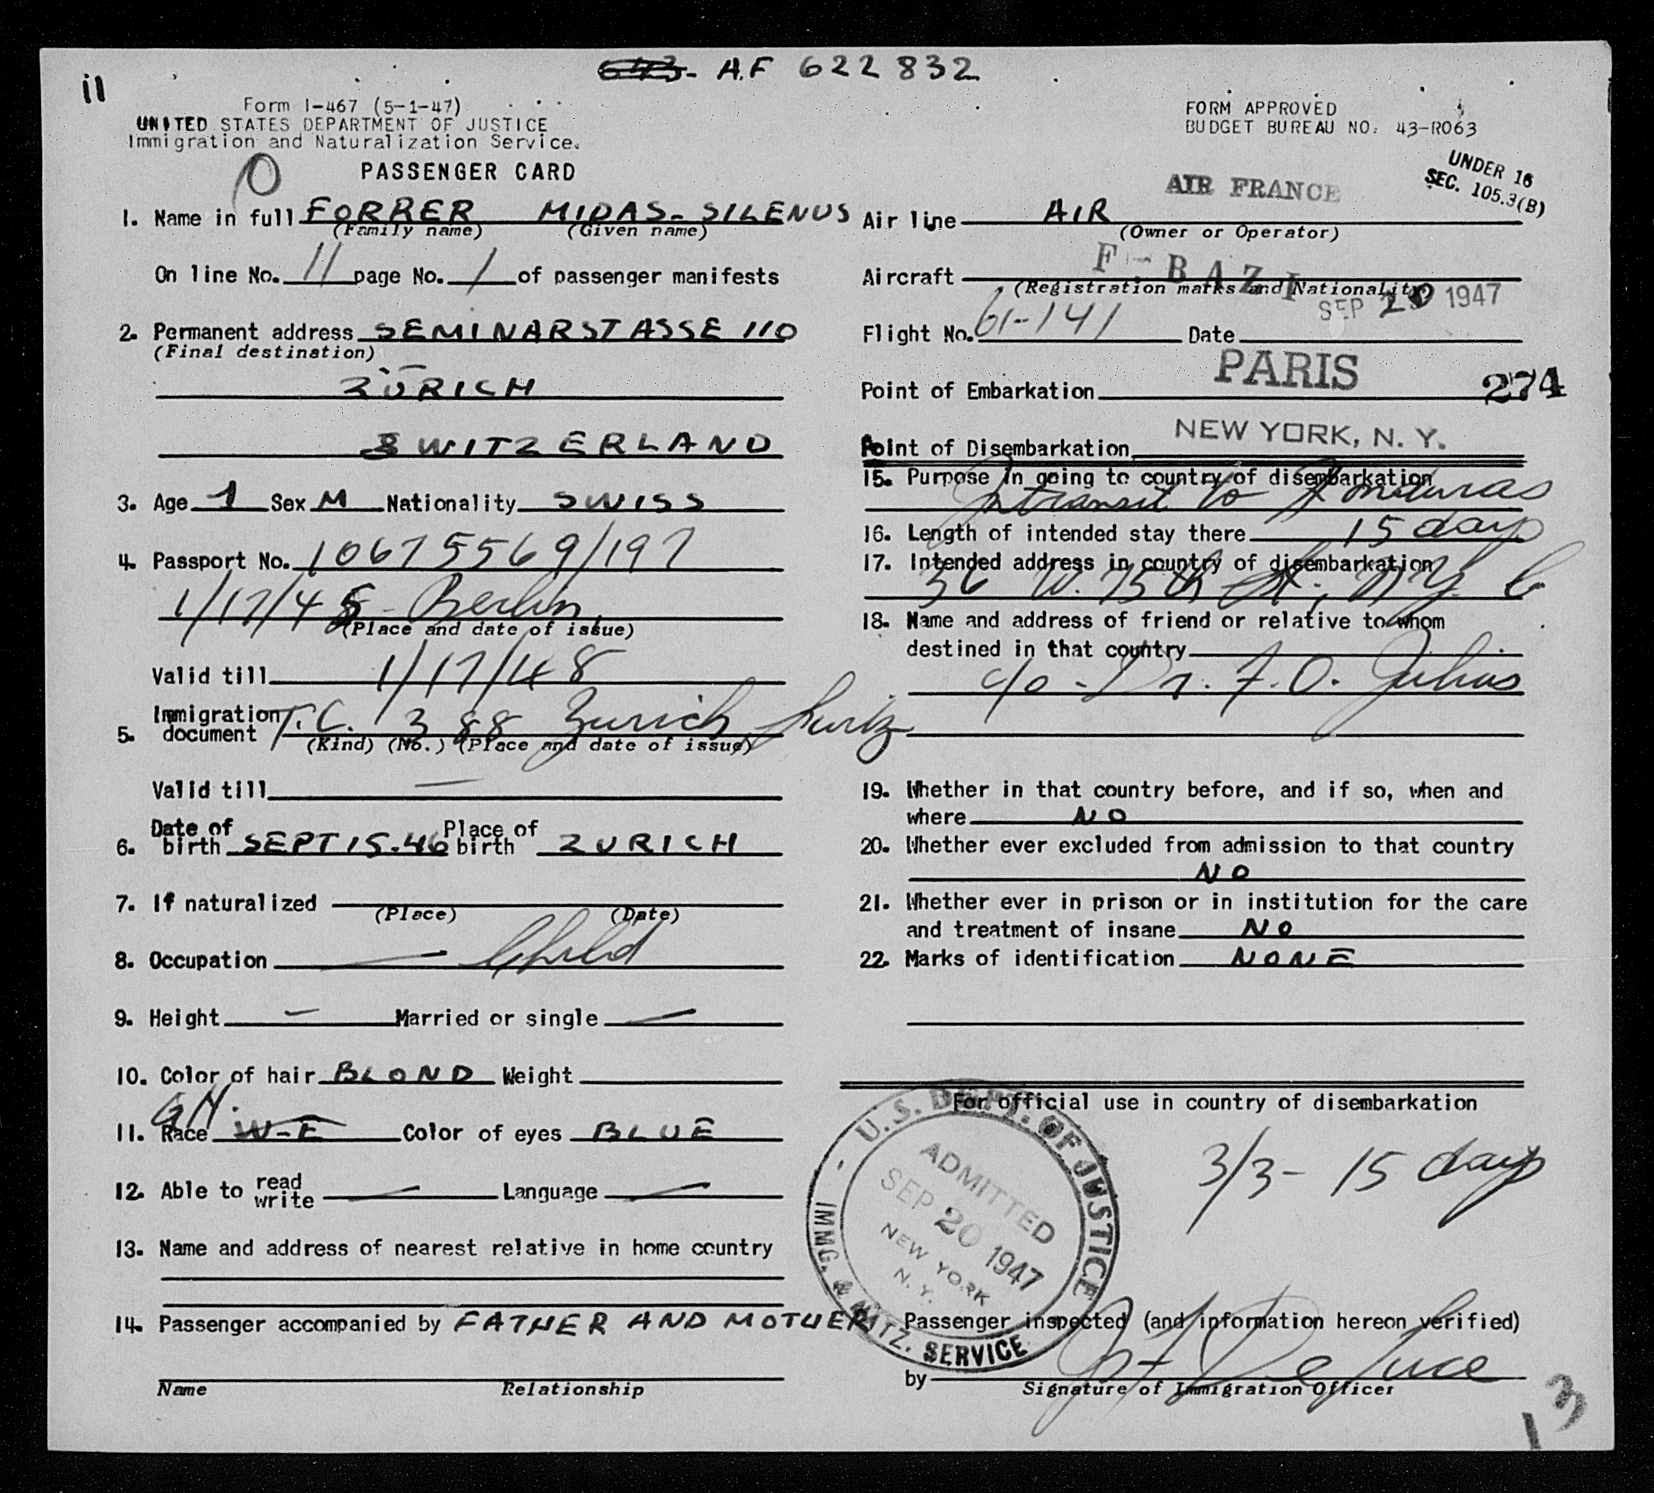 11
643- A.F 622 832
Form I-467 (5-1-47)
UNITED STATES DEPARTMENT OF JUSTICE
Immigration and Naturalization Service.
PASSENGER CARD
FORM APPROVED
BUDGET BUREAU NO. 43-R063
UNDER 16
SEC. 105.3(B)
O
1. Name in full FORRER MIDAS-SILENUS
(Family name) (Given name)
On line No. 11 page No. 1 of passenger manifests
2. Permanent address SEMINARSTASSE 110
(Final destination)
ZÜRICH
SWITZERLAND
3. Age 1 Sex M Nationality SWISS
4. Passport No. 10675569/197
1/17/45 - Berlin
(Place and date of issue)
Valid till 1/17/48
5. Immigration document T.C. 388 Zurich
(Kind) (No.) (Place and date of issue)
Valid till —
6. Date of birth SEPT 15.46 Place of birth ZURICH
7. If naturalized
(Place) (Date)
8. Occupation — Child
9. Height — Married or single —
10. Color of hair BLOND Weight
GN.
11. Race W-E Color of eyes BLUE
12. Able to read write — Language —
13. Name and address of nearest relative in home country
14. Passenger accompanied by FATHER AND MOTHER
Name Relationship
AIR FRANCE
Air line AIR
(Owner or Operator)
Aircraft F-BAZI
(Registration marks and Nationality)
Flight No. 61-141 Date SEP 20 1947
Point of Embarkation PARIS
274
Point of Disembarkation NEW YORK, N. Y.
15. Purpose in going to country of disembarkation
Intransit to Honduras
16. Length of intended stay there 15 days
17. Intended address in country of disembarkation
36 W. 75th St., N.Y.C
18. Name and address of friend or relative to whom
destined in that country
c/o - Dr. F. O. Julius
19. Whether in that country before, and if so, when and
where NO
20. Whether ever excluded from admission to that country
NO
21. Whether ever in prison or in institution for the care
and treatment of insane NO
22. Marks of identification NONE
For official use in country of disembarkation
3/3 - 15 days
U.S. DEPT. OF JUSTICE
ADMITTED
SEP 20 1947
NEW YORK
N. Y.
IMMG. & NATZ. SERVICE
Passenger inspected (and information hereon verified)
by
Signature of Immigration Officer
13